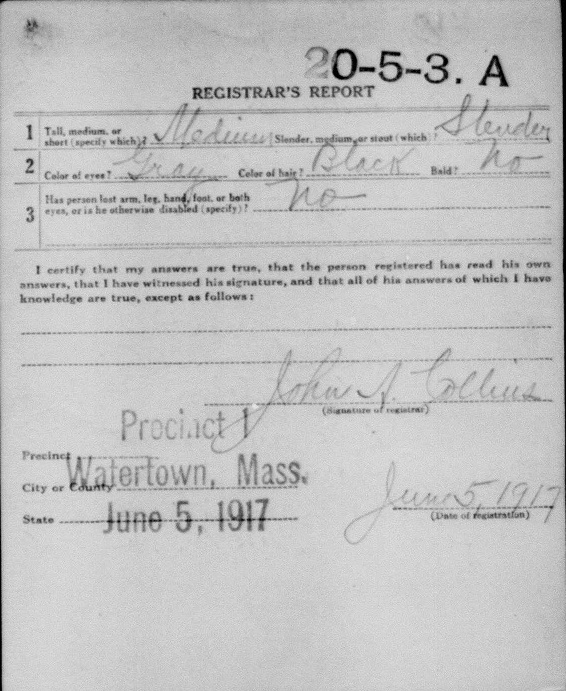 20-5-3. A
REGISTRAR'S REPORT
1 Tall, medium, or short (specify which)? Medium Slender, medium, or stout (which)? Slender
2 Color of eyes? Gray Color of hair? Black Bald? No
3 Has person lost arm, leg, hand, foot, or both eyes, or is he otherwise disabled (specify)? No
I certify that my answers are true, that the person registered has read his own
answers, that I have witnessed his signature, and that all of his answers of which I have
knowledge are true, except as follows:
John A. Collins
(Signature of registrar)
Precinct 1
Precinct
City or County Watertown, Mass.
State June 5, 1917
June 5, 1917
(Date of registration)